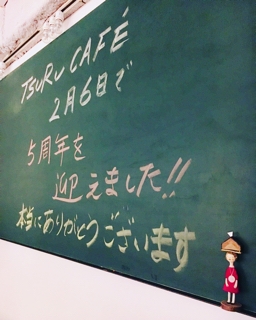 TSURU CAFÉ
2月6日で
5周年を
迎えました!!
本当にありがとうございます